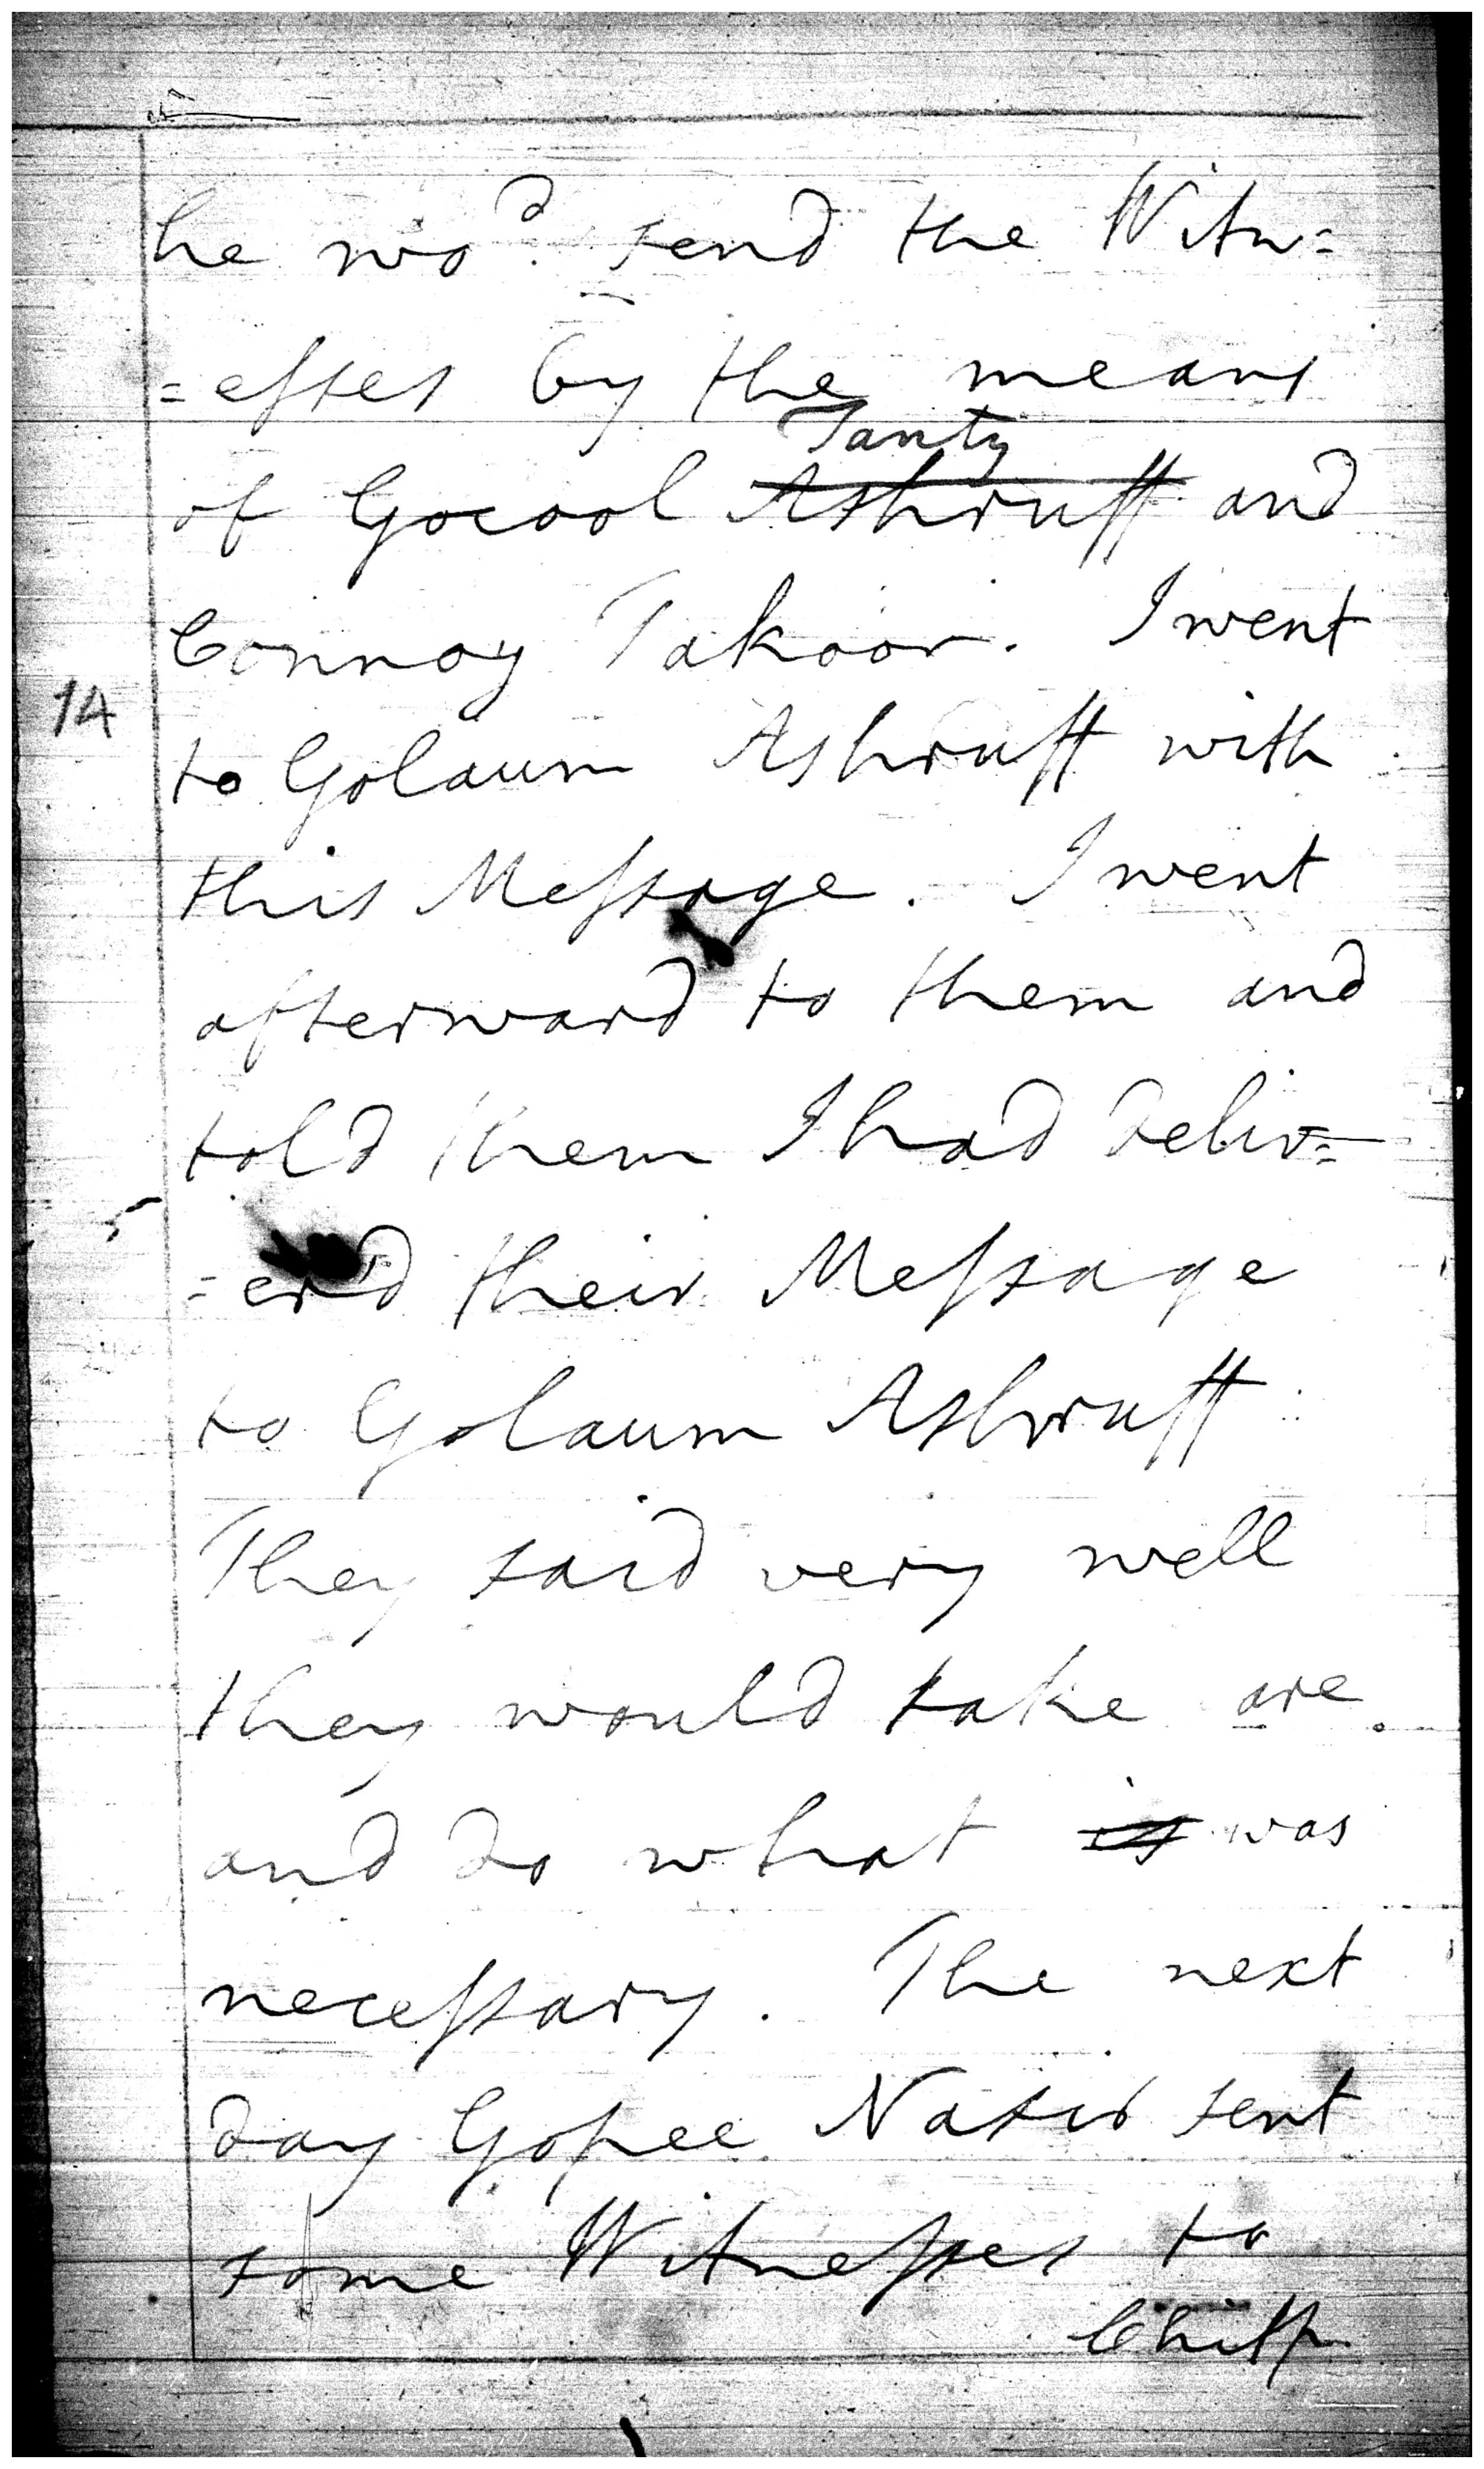 he wo.d send the Witn=
=esses by the means
Tanty
of Gocool Ashruff and
Connoy Takoor. I went
14
to Golaum Ashruff with
this Message. I went
afterward to them and
told them I had deliv=
=er'd their Message
to Golaum Ashruff
They said very well
they would take are
and do what is was
necessary. The next
day Gopee Nasir sent
some Witnesses to